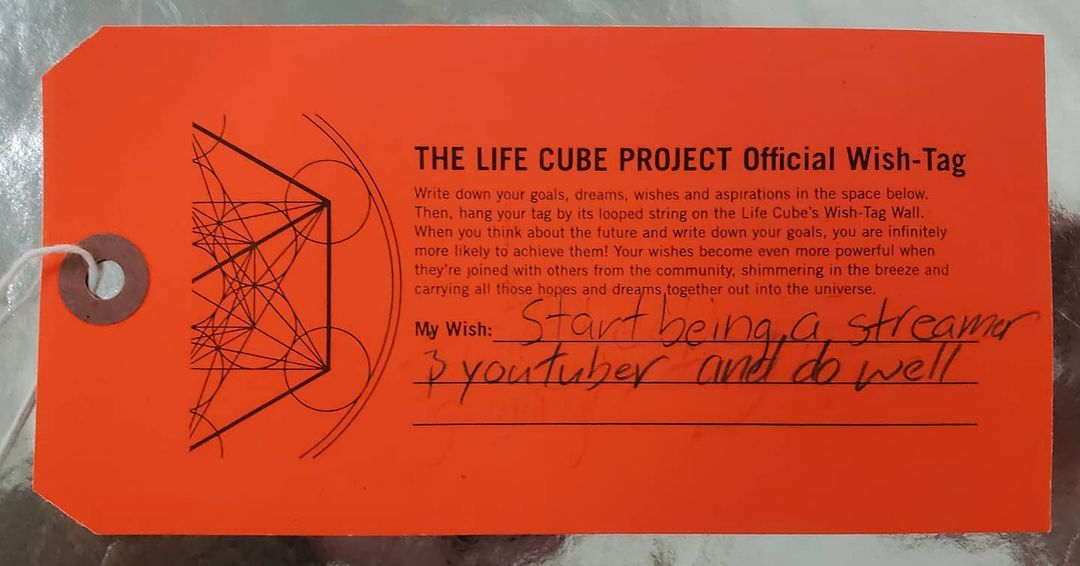 THE LIFE CUBE PROJECT Official Wish-Tag
Write down your goals, dreams, wishes and aspirations in the space below.
Then, hang your tag by its looped string on the Life Cube's Wish-Tag Wall.
When you think about the future and write down your goals, you are infinitely
more likely to achieve them! Your wishes become even more powerful when
they're joined with others from the community, shimmering in the breeze and
carrying all those hopes and dreams together out into the universe.
My Wish: Start being a streamer
& youtuber and do well